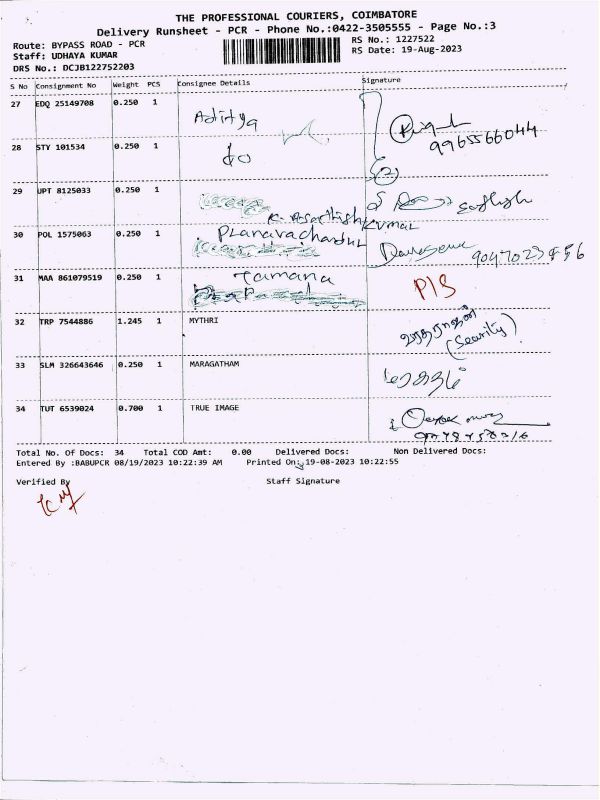 THE PROFESSIONAL COURIERS, COIMBATORE
Delivery Runsheet - PCR - Phone No.:0422-3505555 - Page No.:3
Route: BYPASS ROAD - PCR
RS No.: 1227522
Staff: UDHAYA KUMAR
RS Date: 19-Aug-2023
DRS No.: DCJB122752203
S No Consignment No Weight PCS Consignee Details Signature
27 EDQ 25149708 0.250 1 Aditya
9965566044
28 STY 101534 0.250 1 do
29 UPT 8125033 0.250 1
30 POL 1575063 0.250 1
31 MAA 861079519 0.250 1 Tamana P/S
32 TRP 7544886 1.245 1 MYTHRI
(Security)
33 SLM 326643646 0.250 1 MARAGATHAM
34 TUT 6539024 0.700 1 TRUE IMAGE
Total No. Of Docs: 34 Total COD Amt: 0.00 Delivered Docs: Non Delivered Docs:
Entered By :BABUPCR 08/19/2023 10:22:39 AM Printed On: 19-08-2023 10:22:55
Verified By Staff Signature